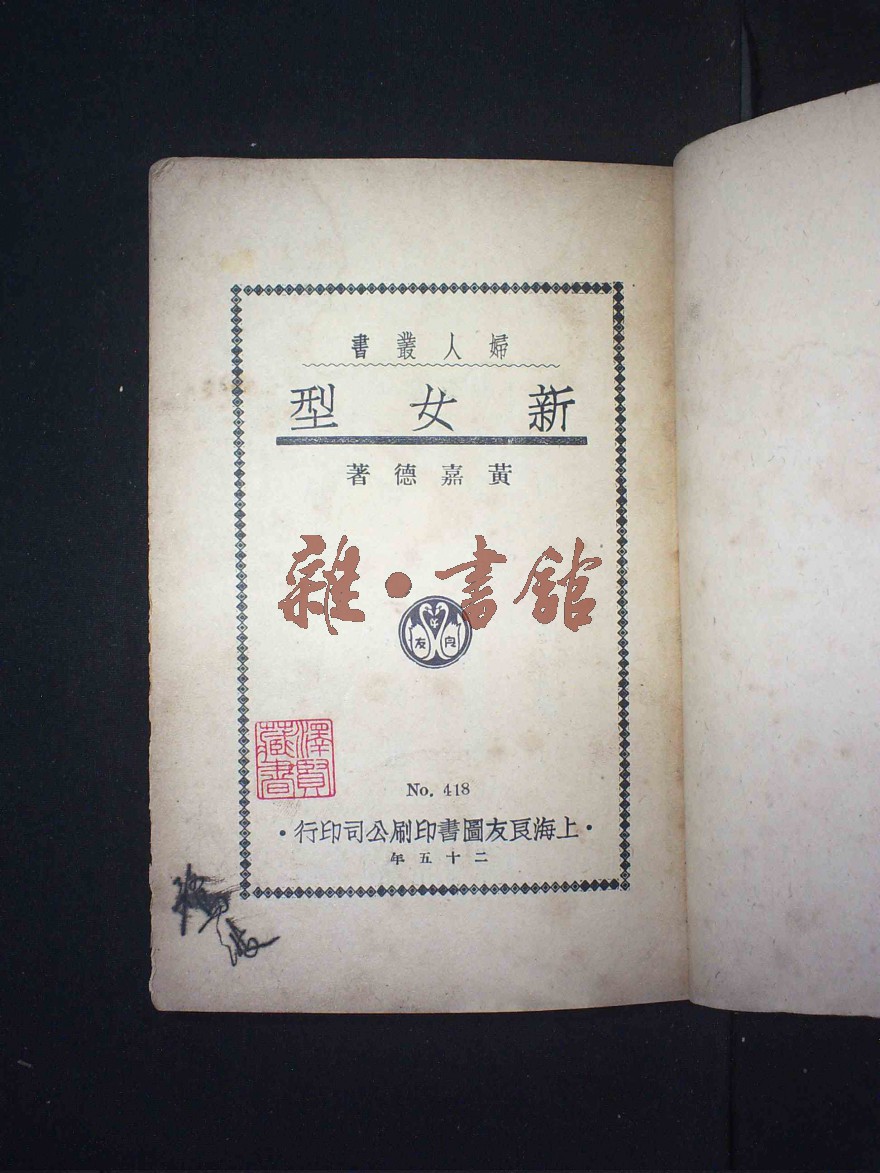 婦人叢書
新女型
黃嘉德著
雜·書館
良友
澤賢藏書
No. 418
·上海良友圖書印刷公司印行·
二十五年